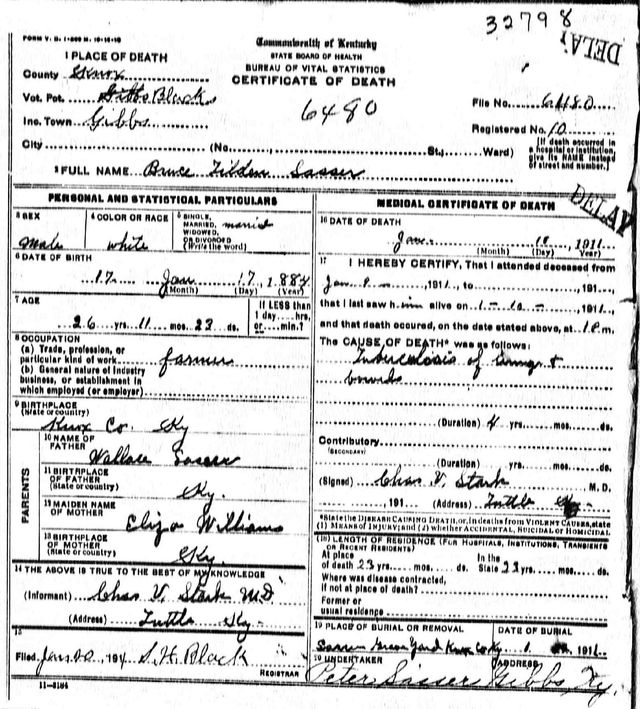 32798
FORM V. S. 1-
Commonwealth of Kentucky
STATE BOARD OF HEALTH
BUREAU OF VITAL STATISTICS
CERTIFICATE OF DEATH
DELAY
1 PLACE OF DEATH
County Knox
Vot. Pct. Gibbs Black
Inc. Town Gibbs
6480
File No. 6480
Registered No. 10
City (No. St., Ward)
[If death occurred in a hospital or institution, give its NAME instead of street and number.]
2 FULL NAME Bruce Tilden Sasser
DELAY
PERSONAL AND STATISTICAL PARTICULARS
3 SEX
Male
4 COLOR OR RACE
white
5 SINGLE, MARRIED, WIDOWED, OR DIVORCED
(Write the word)
married
6 DATE OF BIRTH
17 Jan 17, 1884
(Month) (Day) (Year)
7 AGE
26 yrs. 11 mos. 23 ds.
If LESS than
1 day....hrs.
or....min.?
8 OCCUPATION
(a) Trade, profession, or
particular kind of work farmer
(b) General nature of Industry
business, or establishment in
which employed (or employer)
9 BIRTHPLACE
(State or country)
Knox Co. Ky
PARENTS
10 NAME OF
FATHER
Wallace Sasser
11 BIRTHPLACE
OF FATHER
(State or country)
Ky.
12 MAIDEN NAME
OF MOTHER
Eliza Williams
13 BIRTHPLACE
OF MOTHER
(State or country)
Ky
14 THE ABOVE IS TRUE TO THE BEST OF MY KNOWLEDGE
(Informant) Chas V. Stark M.D.
(Address) Tuttle Ky
15
Filed Jan 20, 191 S. H. Black
REGISTRAR
11-3184
MEDICAL CERTIFICATE OF DEATH
16 DATE OF DEATH
Jan. 10, 1911
(Month) (Day) (Year)
17 I HEREBY CERTIFY, That I attended deceased from
Jan 1911, to , 191
that I last saw him alive on 1-10-, 1911,
and that death occured, on the date stated above, at 1 P.m.
The CAUSE OF DEATH* was as follows:
Tuberculosis of lungs &
bowels
(Duration) 4 yrs. mos. ds.
Contributory
(SECONDARY)
(Duration) yrs. mos. ds.
(Signed) Chas V. Stark M.D.
, 191 (Address) Tuttle Ky
*State the DISEASE CAUSING DEATH, or, in deaths from VIOLENT CAUSES, state
(1) MEANS OF INJURY; and (2) whether ACCIDENTAL, SUICIDAL or HOMICIDAL
(18) LENGTH OF RESIDENCE (FOR HOSPITALS, INSTITUTIONS, TRANSIENTS
OR RECENT RESIDENTS)
At place
of death 23 yrs. mos. ds.
In the
State 23 yrs. mos. ds.
Where was disease contracted,
if not at place of death?
Former or
usual residence
19 PLACE OF BURIAL OR REMOVAL
Sasser Grave Yard Knox Co Ky
DATE OF BURIAL
1 1911
20 UNDERTAKER
Peter Sasser
ADDRESS
Gibbs Ky.